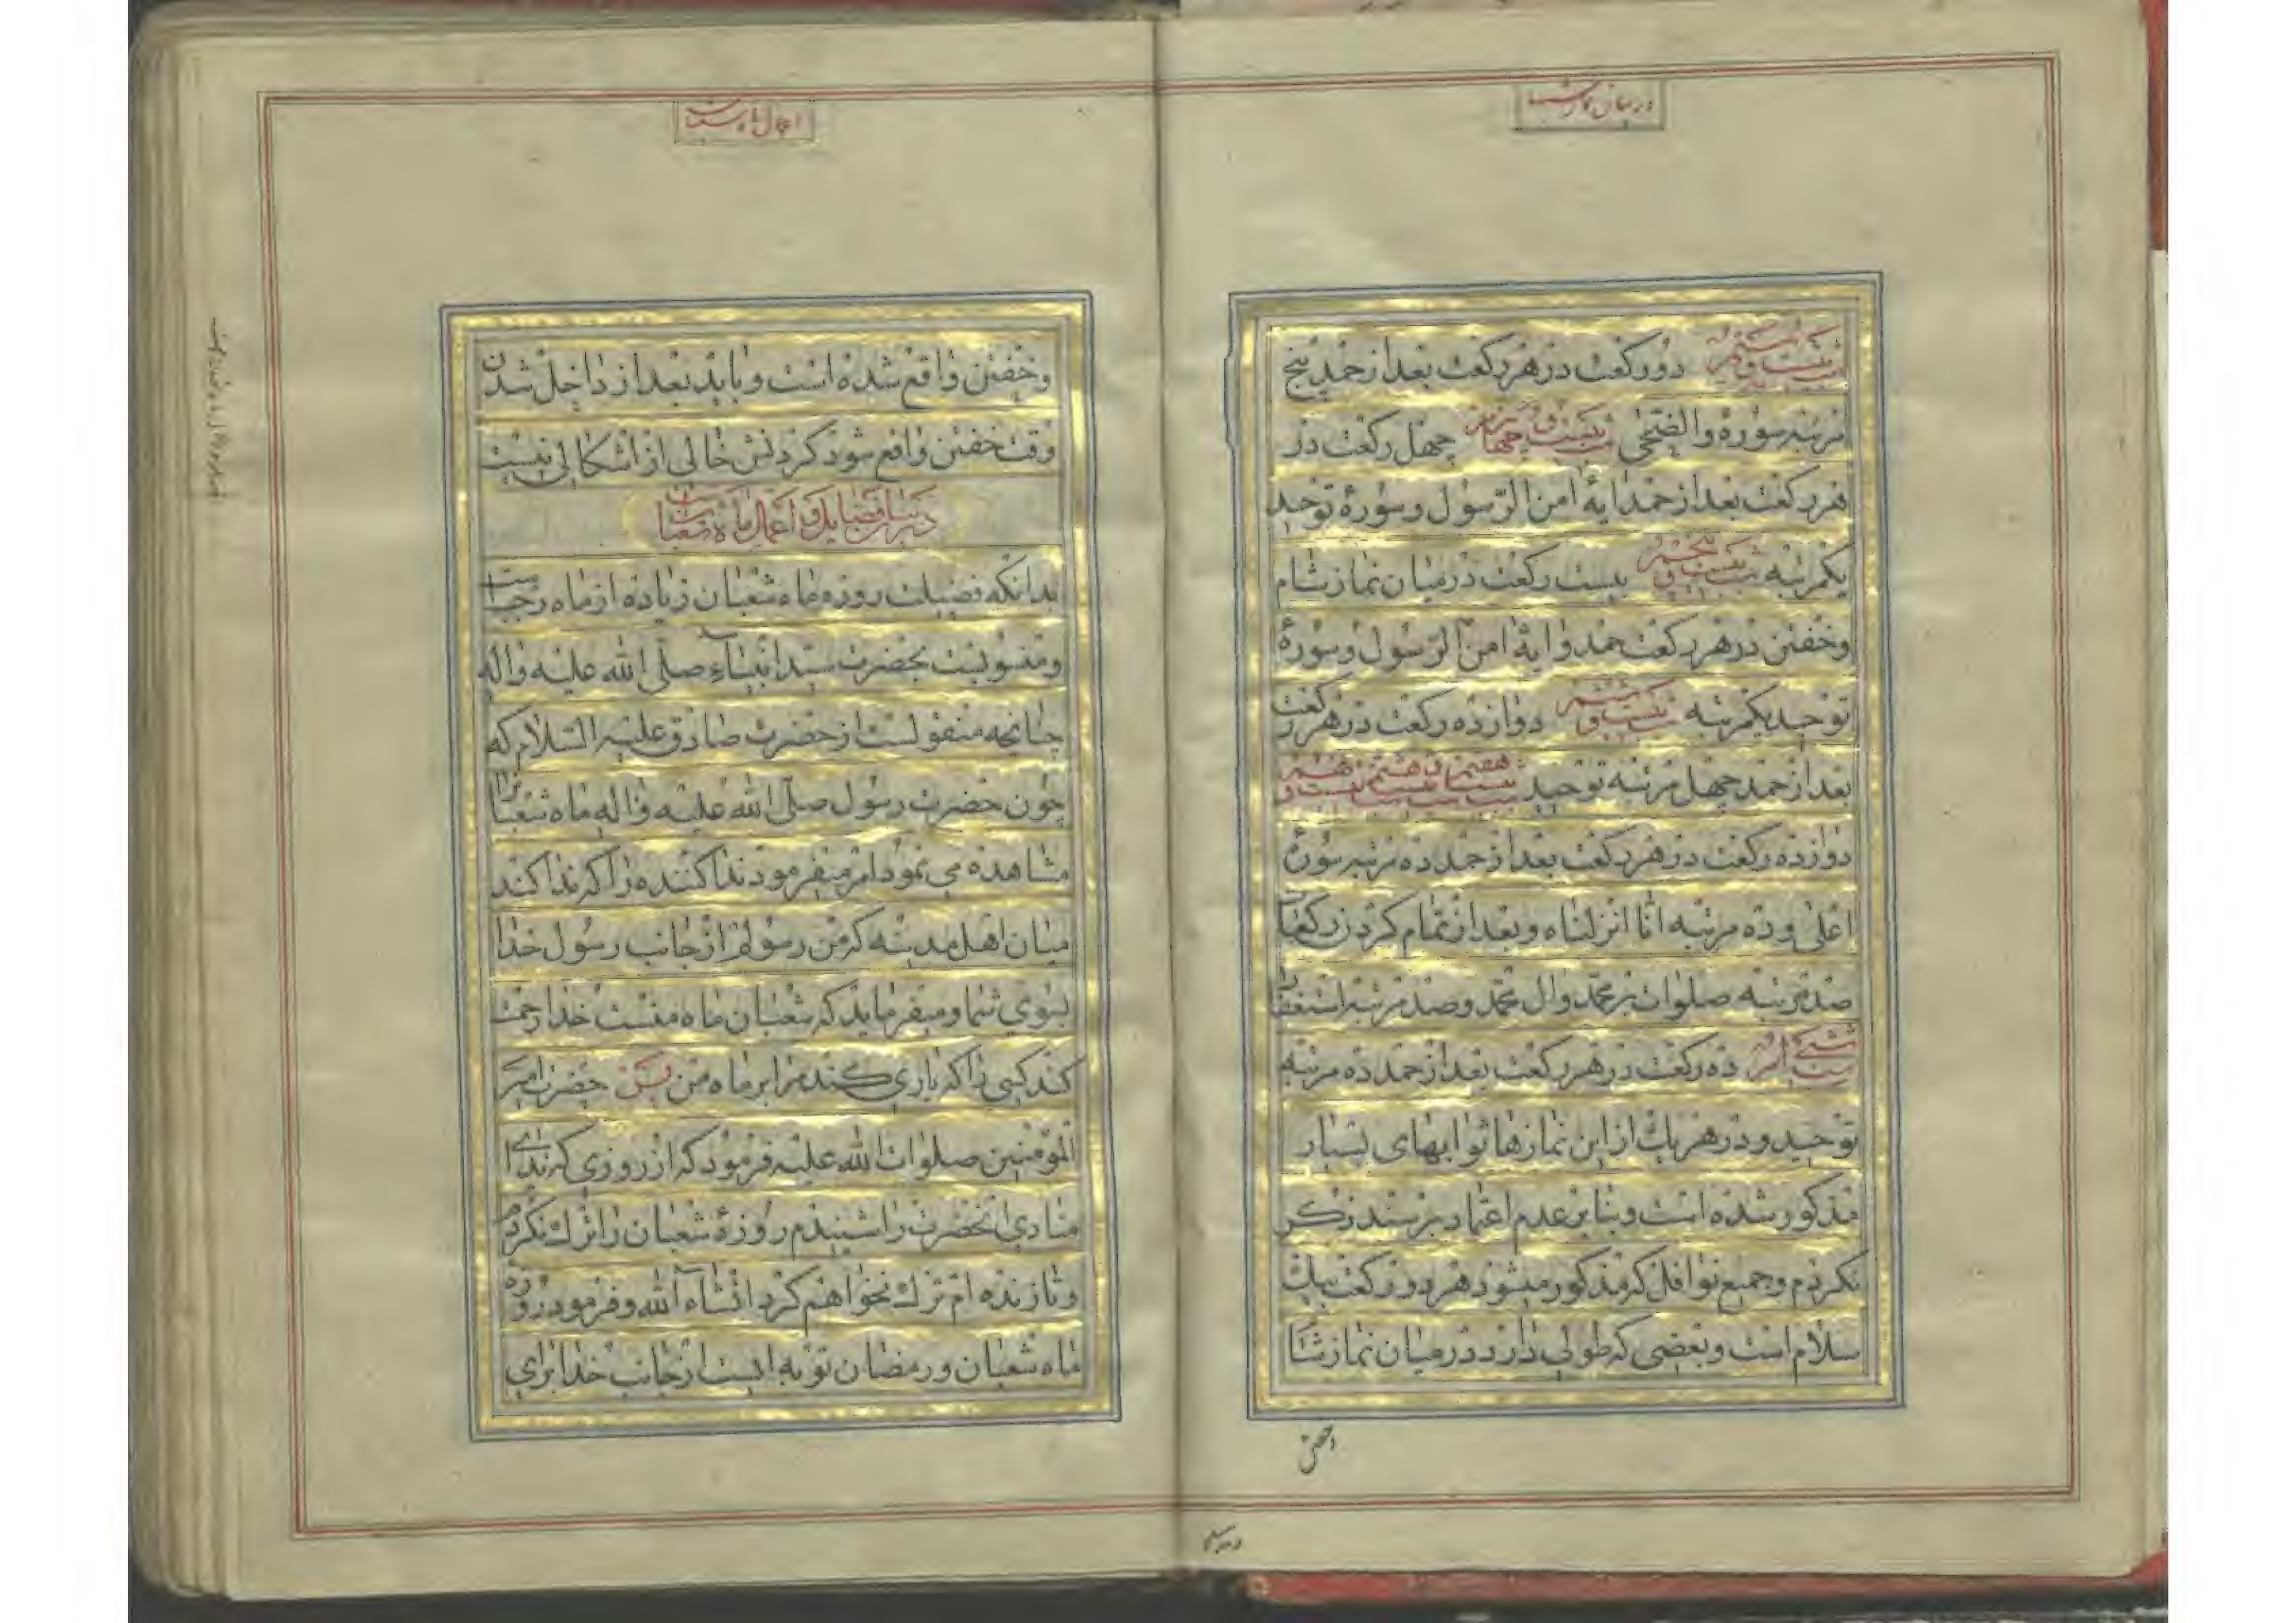 در بیان نماز شبها
شب بیست و سیم دو رکعت در هر رکعت بعد از حمد پنج
مرتبه سوره والضحی شب بیست و چهارم چهل رکعت در
هر رکعت بعد از حمد ایهٔ امن الرسول و سورهٔ توحید
یکمرتبه شب بیست و پنجم بیست رکعت در میان نماز شام
و خفتن در هر رکعت حمد و ایهٔ امن الرسول و سورهٔ
توحید یکمرتبه شب بیست و ششم دوازده رکعت در هر رکعت
بعد از حمد چهل مرتبه توحید شب بیست و هفتم و هشتم و نهم
دوازده رکعت در هر رکعت بعد از حمد ده مرتبه سورهٔ
اعلی و ده مرتبه انا انزلناه و بعد از تمام کردن رکعات
صد مرتبه صلوات بر محمد وال محمد و صد مرتبه استغفار
شب سی ام ده رکعت در هر رکعت بعد از حمد ده مرتبه
توحید و در هر یک از این نمازها ثوابهای بسیار
مذکور شده است و بنابر عدم اعتماد بر سند ذکر
نکردم و جمیع نوافل که مذکور میشود هر دو رکعت بیک
سلام است و بعضی که طولی دارد در میان نماز شام
و خفتن
اعمال ماه شعبان
و خفتن واقع شده است و باید بعد از داخل شدن
وقت خفتن واقع شود کردنش خالی از اشکالی نیست
در بیان فضایل و اعمال ماه شعبان
بدانکه فضیلت روزه ماه شعبان زیاده از ماه رجب است
و منسوبست بحضرت سید انبیاء صلی الله علیه واله
چنانچه منقولست از حضرت صادق علیه السلام که
چون حضرت رسول صلی الله علیه واله ماه شعبان را
مشاهده می نمود امر میفرمود ندا کننده را که ندا کند
میان اهل مدینه که من رسولم از جانب رسول خدا
بسوی شما و میفرماید که شعبان ماه منست خدا رحمت
کند کسی را که یاری کند مرا بر ماه من پس حضرت امیر
المؤمنین صلوات الله علیه فرمود که از روزی که ندای
منادی انحضرت را شنیدم روزهٔ شعبان را ترک نکردم
و تا زنده ام ترک نخواهم کرد انشاء الله و فرمود روزه
ماه شعبان و رمضان توبه ایست از جانب خدا برای